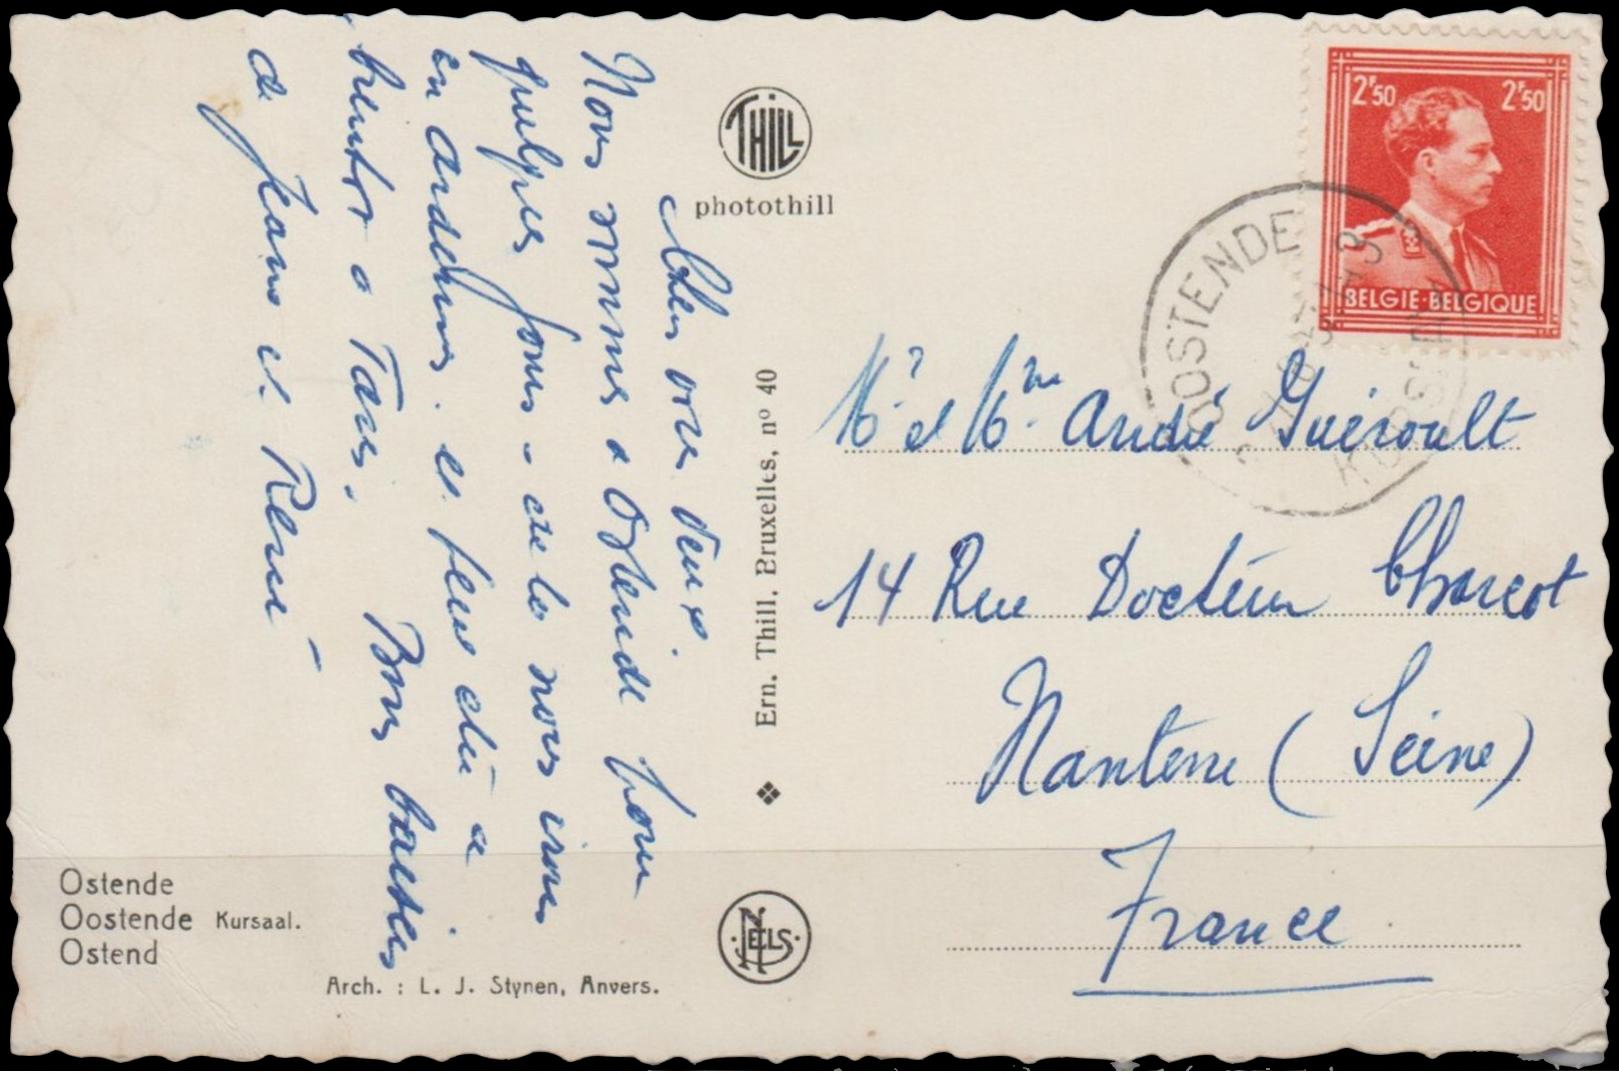 Chers vous deux.
Nous sommes à Ostende pour
quelques jours - de là nous irons
en Ardennes. et peut être à
bientôt à Paris. Bons baisers
de Jeanne et René
THILL
photothill
Ern. Thill, Bruxelles, nº 40
NELS
Ostende
Oostende Kursaal.
Ostend
Arch. : L. J. Stynen, Anvers.
2F50 2F50
BELGIE·BELGIQUE
OOSTENDE
KURSAAL
Mr et Mme André Guéroult
14 Rue Docteur Charcot
Nanterre (Seine)
France